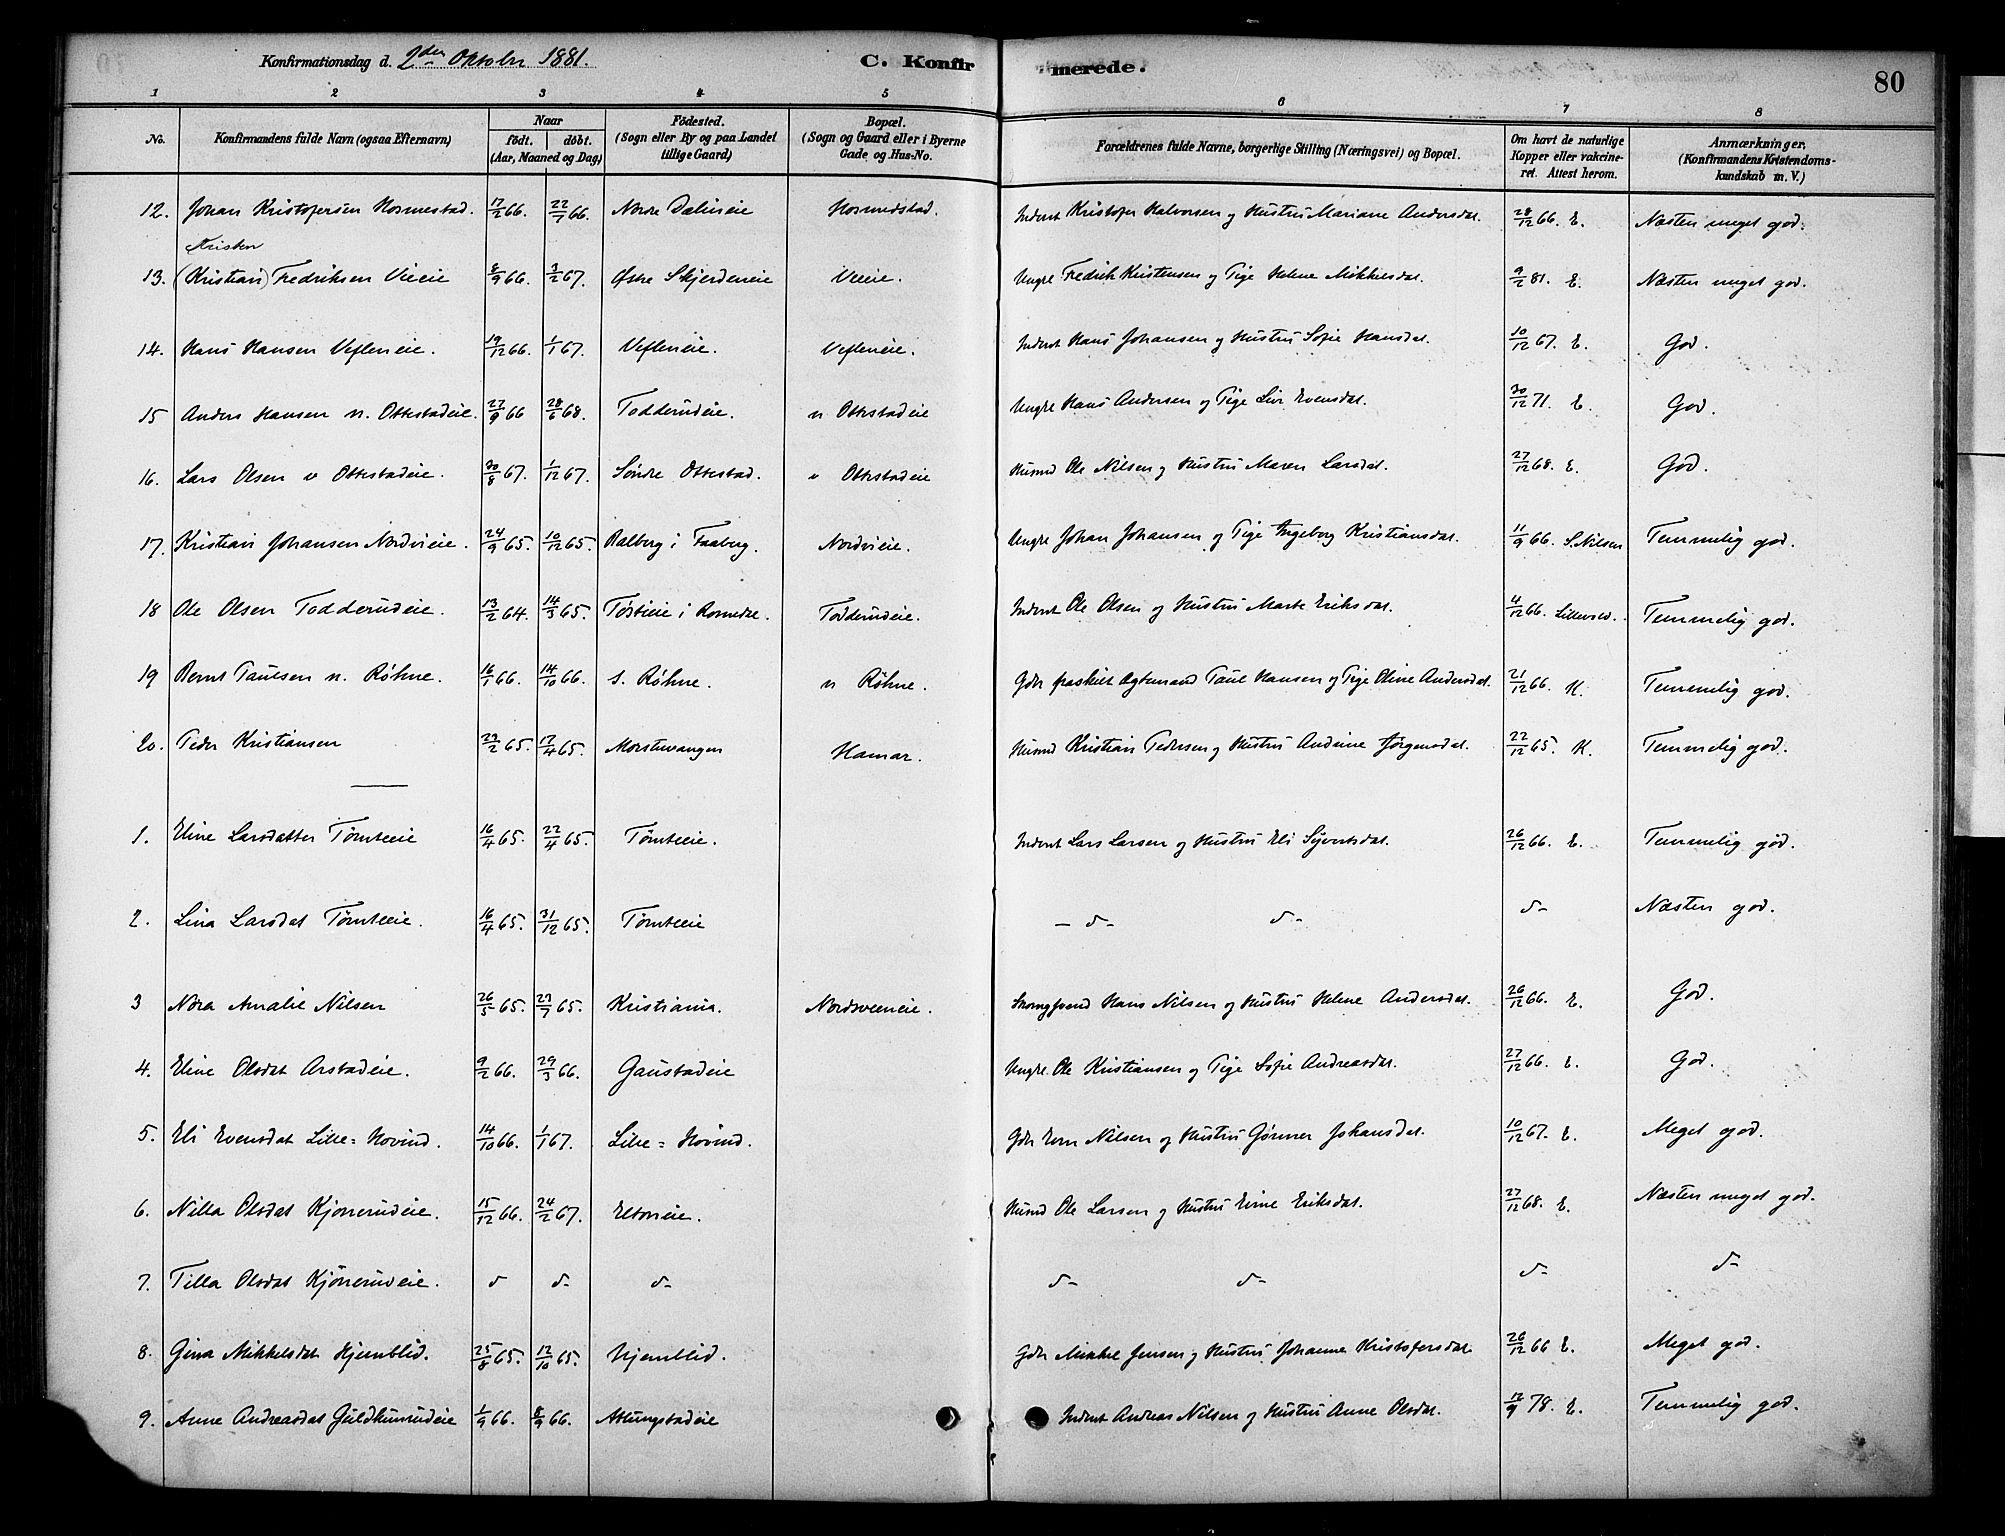 Konfirmationsdag d. 2den Oktober 1881.
C. Konfirmerede.
80
1 2 3 4 5 6 7 8
No. Konfirmandens fulde Navn (ogsaa Efternavn) Naar født. døbt. (Aar, Maaned og Dag) Fødested. (Sogn eller By og paa Landet tillige Gaard) Bopæl. (Sogn og Gaard eller i Byerne Gade og Hus-No. Forældrenes fulde Navne, borgerlige Stilling (Næringsvei) og Bopæl. Om havt de naturlige Kopper eller vakcineret. Attest herom. Anmærkninger. (Konfirmandens Kristendomskundskab m. V.)
12. Johan Kristofersen Hosmestad. 17/2 66. 22/7 66. Nordre Dælineie Hosmedstad. Inderst Kristofer Halvorsen og Hustru Mariane Andersdat. 28/12 66. E. Næsten meget god.
Kristen
13. (Kristian) Fredriksen Vieie 8/9 66. 3/2 67. Østre Skjerdeneie Vieie. Ungk. Fredrik Kristensen og Pige Helene Mikkelsdat. 9/2 81. E. Næsten meget god.
14. Hans Hansen Vefleneie. 19/12 66. 1/1 67. Vefleneie. Vefleneie. Inderst Hans Johansen og Hustru Sofie Hansdat. 10/12 67. E. God.
15 Anders Hansen n. Ottestadeie. 27/9 66 28/6 68. Todderudeie. n Ottestadeie Ungk Hans Andersen og Pige Liv Evensdat. 30/12 71. E. God.
16. Lars Olsen v Ottestadeie. 30/8 67. 1/12 67. Søndre Ottestad. v Ottestadeie Husmd Ole Nilsen og Hustru Maren Larsdat. 27/12 68. E. God.
17. Kristian Johansen Nordvieie. 24/9 65. 10/12 65. Balberg i Faaberg. Nordvieie. Ungk Johan Johansen og Pige Ingeborg Kristiansdat. 11/9 66. S. Nilsen Temmelig god.
18 Ole Olsen Todderudeie. 13/2 64. 14/3 65. Tøstieie i Romedal. Todderudeie. Inderst Ole Olsen og Hustru Marte Eriksdat. 4/12 66. Temmelig god.
19 Bernt Paulsen n. Røhne. 16/1 66. 14/10 66. s. Røhne. n Røhne. Gdr fraskilt Ægtemand Paul Hansen og Pige Oline Andersdat. 21/12 66. K. Temmelig god.
20. Peder Kristiansen 23/2 65. 17/4 65. Morstuvangen Hamar. Husmd Kristian Pedersen og Hustru Andrine Jørgensdat. 22/12 65. K. Temmelig god.
1. Eline Larsdatter Tømteeie 16/4 65. 22/4 65. Tømteeie. Inderst Lars Larsen og Hustru Eli Syvertsdat. 26/12 66. E. Temmelig god.
2. Lina Larsdat Tømteeie. 16/4 65. 31/12 65. Tømteeie – d– d– d– Næsten god.
3 Nora Amalie Nilsen 26/5 65. 27/7 65. Kristiania. Nordsveeneie. Hans Nilsen og Hustru Helene Andersdat. 26/12 66. E. God.
4. Eline Olsdat Arstadeie. 9/2 66. 29/3 66. Gaustadeie Ungk. Ole Kristiansen og Pige Sofie Andreasdat. 27/12 66. E. God.
5. Eli Evensdat Lille=Hovind. 14/10 66. 1/1 67. Lille=Hovind. Gdr Even Nilsen og Hustru Gørener Johansdat. 10/12 67. E. Meget god.
6. Nilla Olsdat Kjønerudeie. 15/12 66. 24/2 67. Eltoneie. Husmd Ole Larsen og Hustru Eline Eriksdat. 27/12 68. E. Næsten meget god.
7. Tilla Olsdat Kjønerudeie. d d– d– d– d– d– d–
8. Gina Mikkelsdat Hjemblid. 25/8 65. 12/10 65. Hjemblid. Gdr Mikkel Jensen og Hustru Johanne Kristofersdat 26/12 66 E. Meget god.
9. Anne Andreasdat Guldhuusudeie 1/9 66. 8/9 66. Attungstadeie Inderst Andreas Nilsen og Hustru Anne Olsdat. 12/9 78. E. Temmelig god.